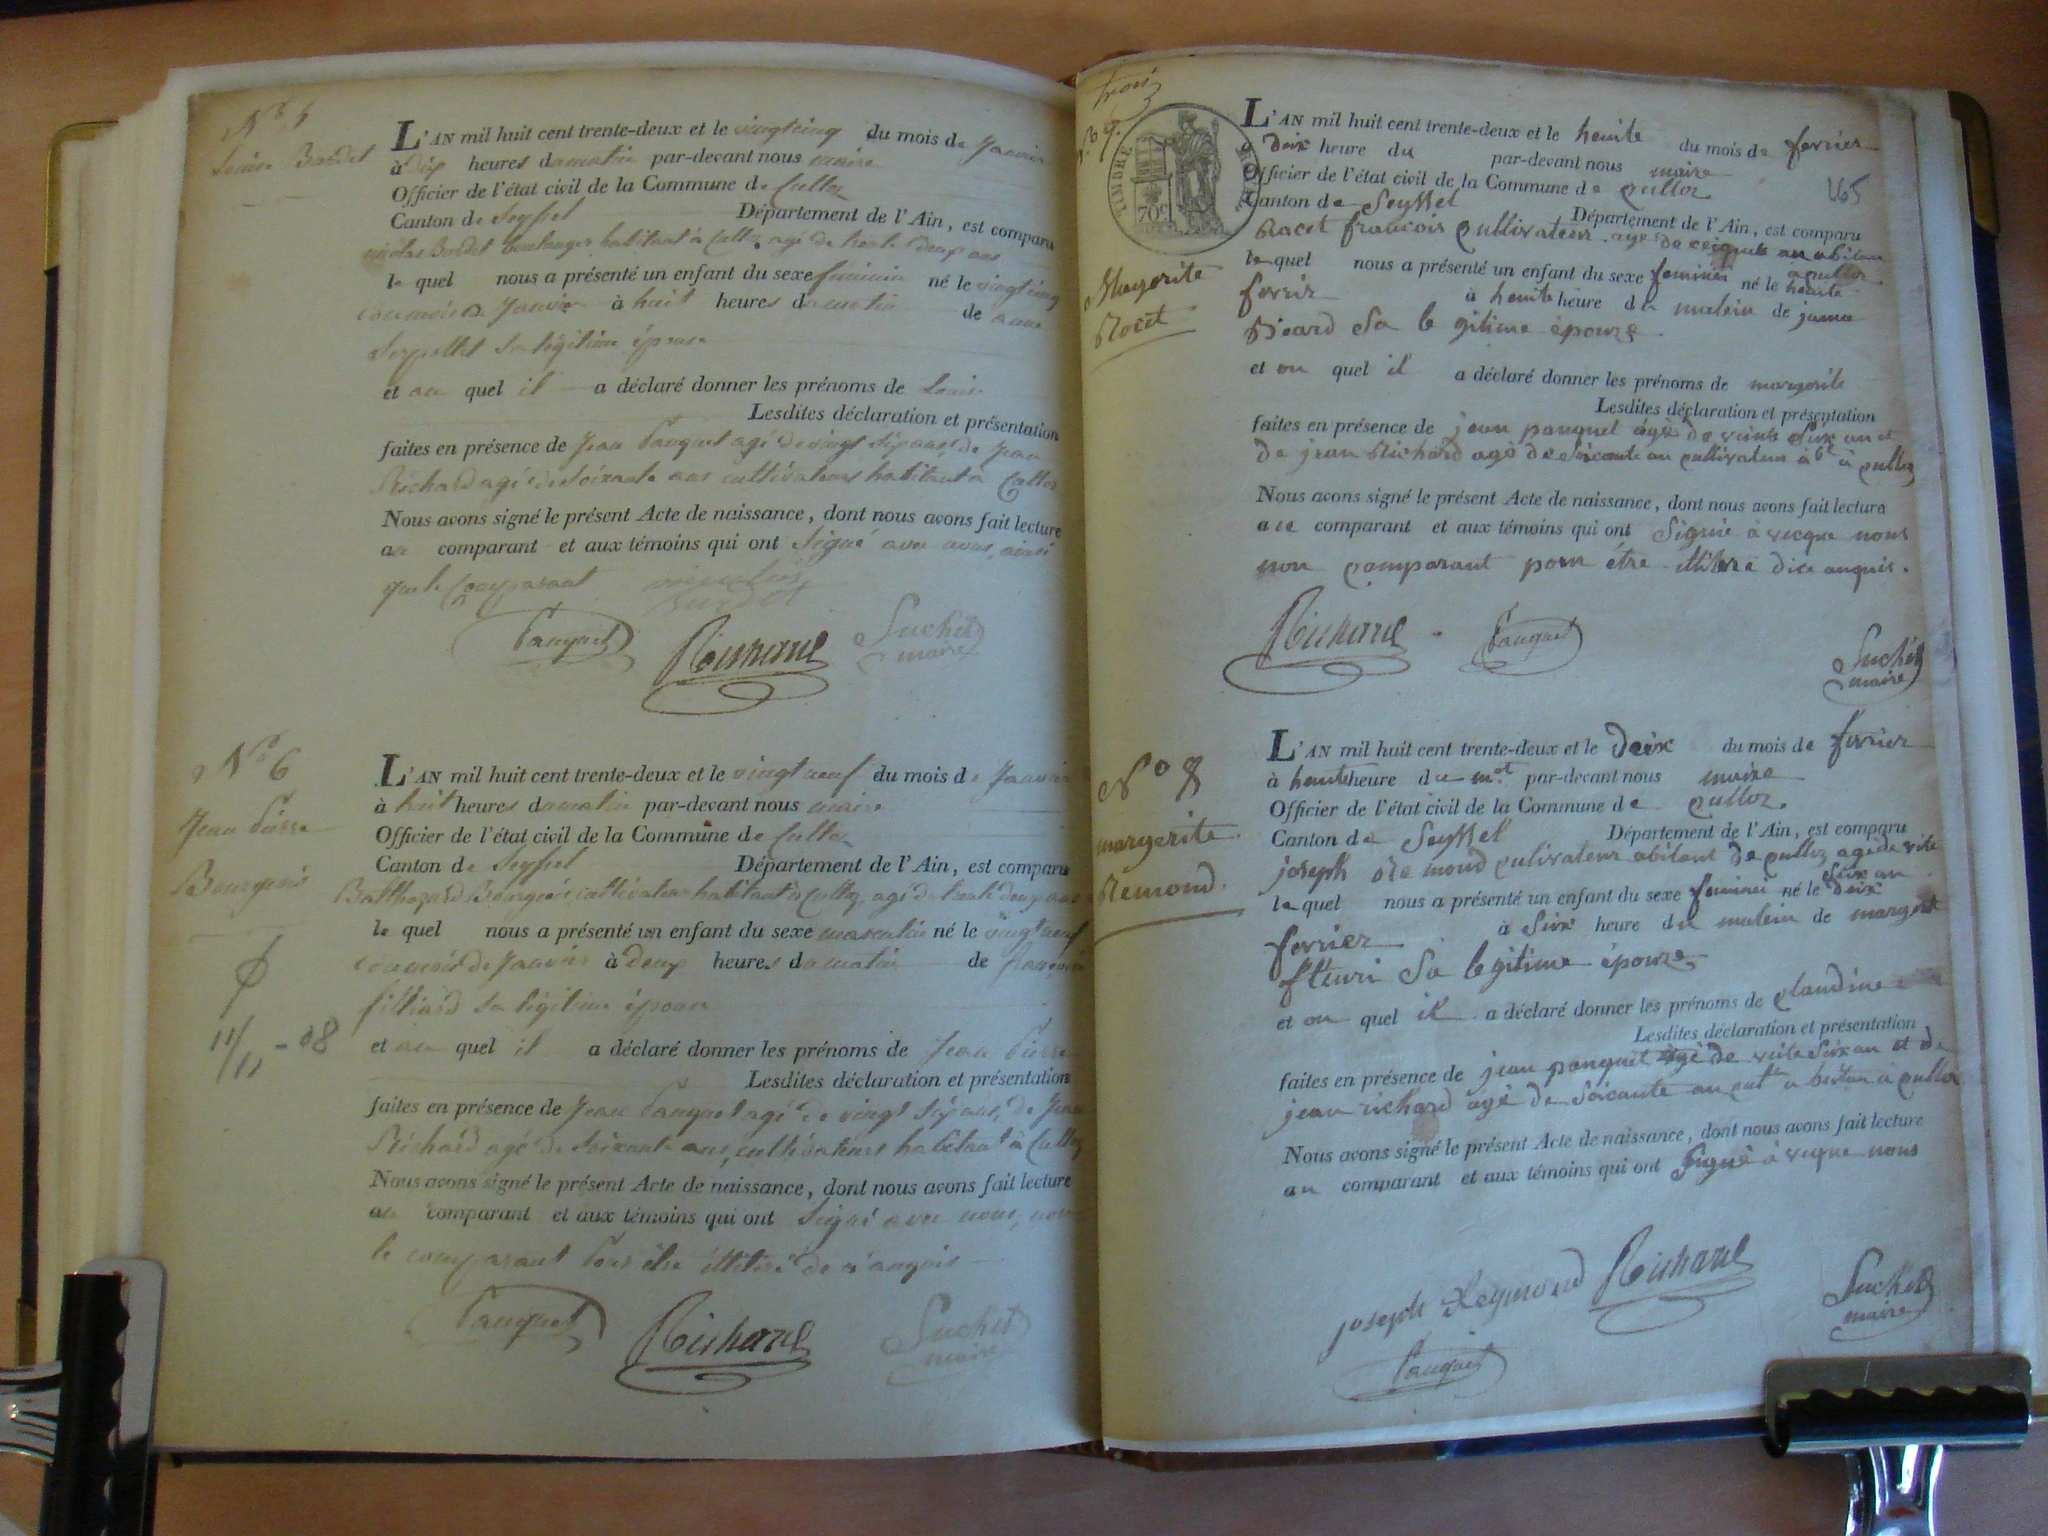 N° 5
Louise Bordet
L'AN mil huit cent trente-deux et le vingt cinq du mois de Janvier
à dix heures du matin par-devant nous maire
Officier de l'état civil de la Commune de Culloz
Canton de Seyssel Département de l'Ain, est comparu
nicolas Bordet boulanger habitant à Culloz agé de trente deux ans
le quel nous a présenté un enfant du sexe feminin né le vingt cinq
du mois de Janvier à huit heures du matin de anne
Serpollet sa légitime épouse
et au quel il a déclaré donner les prénoms de Louise
Lesdites déclaration et présentation
faites en présence de Jean Pauquet agé de vingt six ans, de Jean
Richard agé de soixante ans cultivateurs habitant à Culloz
Nous avons signé le présent Acte de naissance, dont nous avons fait lecture
au comparant et aux témoins qui ont Signé avec nous, ainsi
que le Comparant nicolas
Burdet
Pauquet Richard Suchet
maire
N° 6
Jean Pierre
Bourgeois
11/11 - 08
L'AN mil huit cent trente-deux et le vingt neuf du mois de Janvier
à huit heures du matin par-devant nous maire
Officier de l'état civil de la Commune de Culloz
Canton de Seyssel Département de l'Ain, est comparu
Balthazard Bourgeois cultivateur habitant à Culloz, agé de trente deux ans
le quel nous a présenté un enfant du sexe masculin né le vingt neuf
du mois de Janvier à deux heures du matin de françoise
filliard sa légitime épouse
et au quel il a déclaré donner les prénoms de Jean Pierre
Lesdites déclaration et présentation
faites en présence de Jean Pauquet agé de vingt six ans, de Jean
Richard agé de soixante ans, cultivateurs habitant à Culloz
Nous avons signé le présent Acte de naissance, dont nous avons fait lecture
au comparant et aux témoins qui ont Signé avec nous, non
le comparant pour être illiteré de ce anquis
Pauquet Richard Suchet
maire
trois
TIMBRE ROYAL
70c
165
Margorite
Rocet
L'AN mil huit cent trente-deux et le heuite du mois de fevrier
a deix heure du par-devant nous maire
Officier de l'état civil de la Commune de culloz
Canton de Seyssel Département de l'Ain, est comparu
Racet francois cultivateur age de cinquante an abitan
a culloz
le quel nous a présenté un enfant du sexe feminin né le heuite
fevrir à heuite heure du matein de
sa le gitime épouze
et au quel il a déclaré donner les prénoms de margorite
Lesdites déclaration et présentation
faites en présence de jean pauquet agé de veinte Sixe an et
de jean Richard agé de Soicante an cultivateur à culloz
Nous avons signé le présent Acte de naissance, dont nous avons fait lecture
au comparant et aux témoins qui ont Signié à vecque nous
non comparant pour étre illitéré dice anquis.
Richard Pauquet
Suchet
maire
N° 8
margerite
Remond.
L'AN mil huit cent trente-deux et le deix du mois de fevrier
à heuite heure du mat par-devant nous maire
Officier de l'état civil de la Commune de culloz
Canton de Seyssel Département de l'Ain, est comparu
joseph Re mond cultivateur abitant de culloz age de vite
Sixe an
le quel nous a présenté un enfant du sexe feminin né le deix
fevrier à Sixe heure du matein de margerite
fleuri Sa legitime épouze
et au quel il a déclaré donner les prénoms de claudine
Lesdites déclaration et présentation
faites en présence de jean pauquet agé de veite Six an et de
jean richard agé de Soicante an cult a bitan à culloz
Nous avons signé le présent Acte de naissance, dont nous avons fait lecture
au comparant et aux témoins qui ont Signé à veque nous
joseph Reymond Richard Suchet
maire
Pauquet